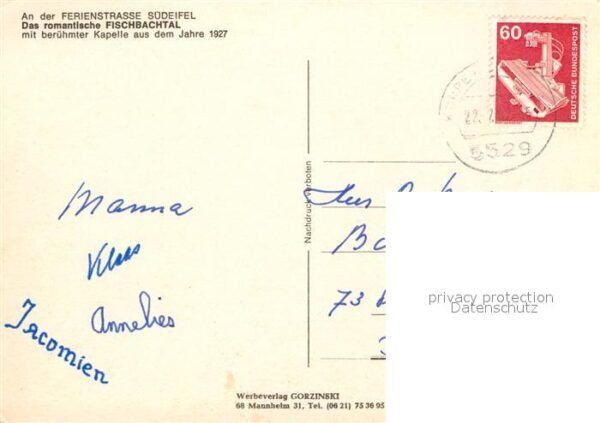 An der FERIENSTRASSE SÜDEIFEL
Das romantische FISCHBACHTAL
mit berühmter Kapelle aus dem Jahre 1927
60
DEUTSCHE BUNDESPOST
22.
5529
Nachdruck verboten
Manna
Klaas
Annelies
Jacomien
73
privacy protection
Datenschutz
Werbeverlag GORZINSKI
68 Mannheim 31, Tel. (06 21) 75 36 95